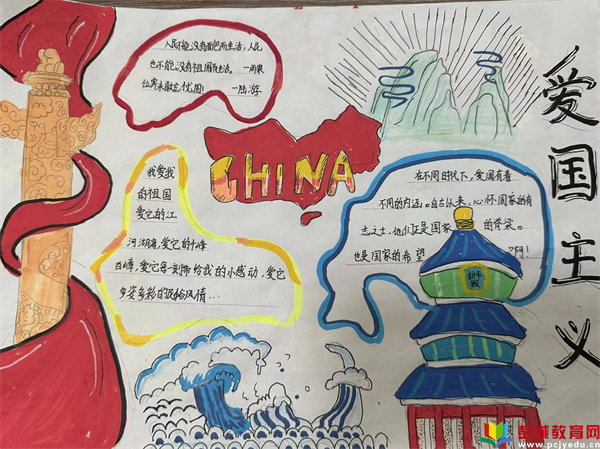 爱国主义
人民不能没有面包而生活，人民
也不能没有祖国而生活。 —雨果
位卑未敢忘忧国！ —陆游
CHINA
我爱我
的祖国
爱它的江
河湖海，爱它的
爱它每一刻带给我的小感动，爱它
多姿多彩的民俗风情…
在不同时代下，爱国有着
不同的内涵。自古以来，心怀国家的有
志之士，他们正是国家 的脊梁。
也是国家的希望 啊！
祈年殿
教育网
www.pcjyedu.cn